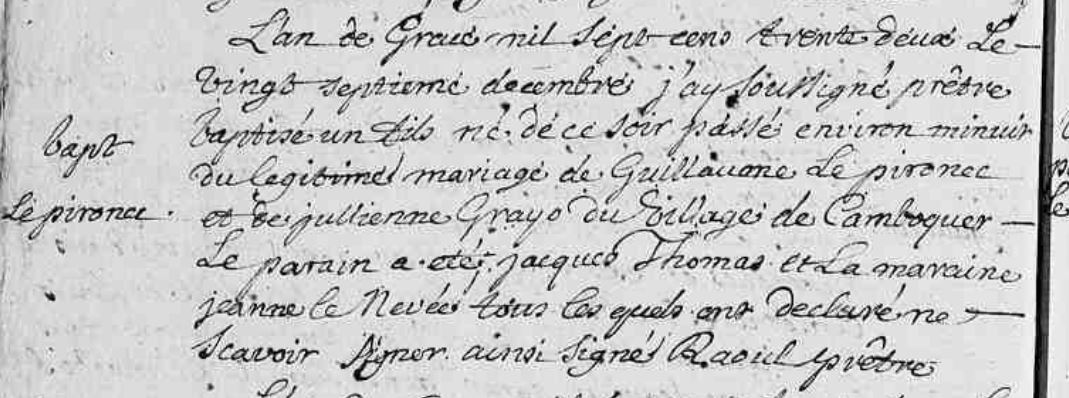 L'an de Grace mil sept cens trente deux Le
vingt septieme decembre j'ay soussigné prêtre
bapt
baptisé un fils né de ce soir passé environ minuit
du legitime mariage de Guillaume Le pironec
Le pironec
et de jullienne Grayo du village de Camboquer
Le parain a eté jacques Thomas et La maraine
jeanne le Nevéé tous les quels ont declaré ne
scavoir signer ainsi signé Raoul prêtre